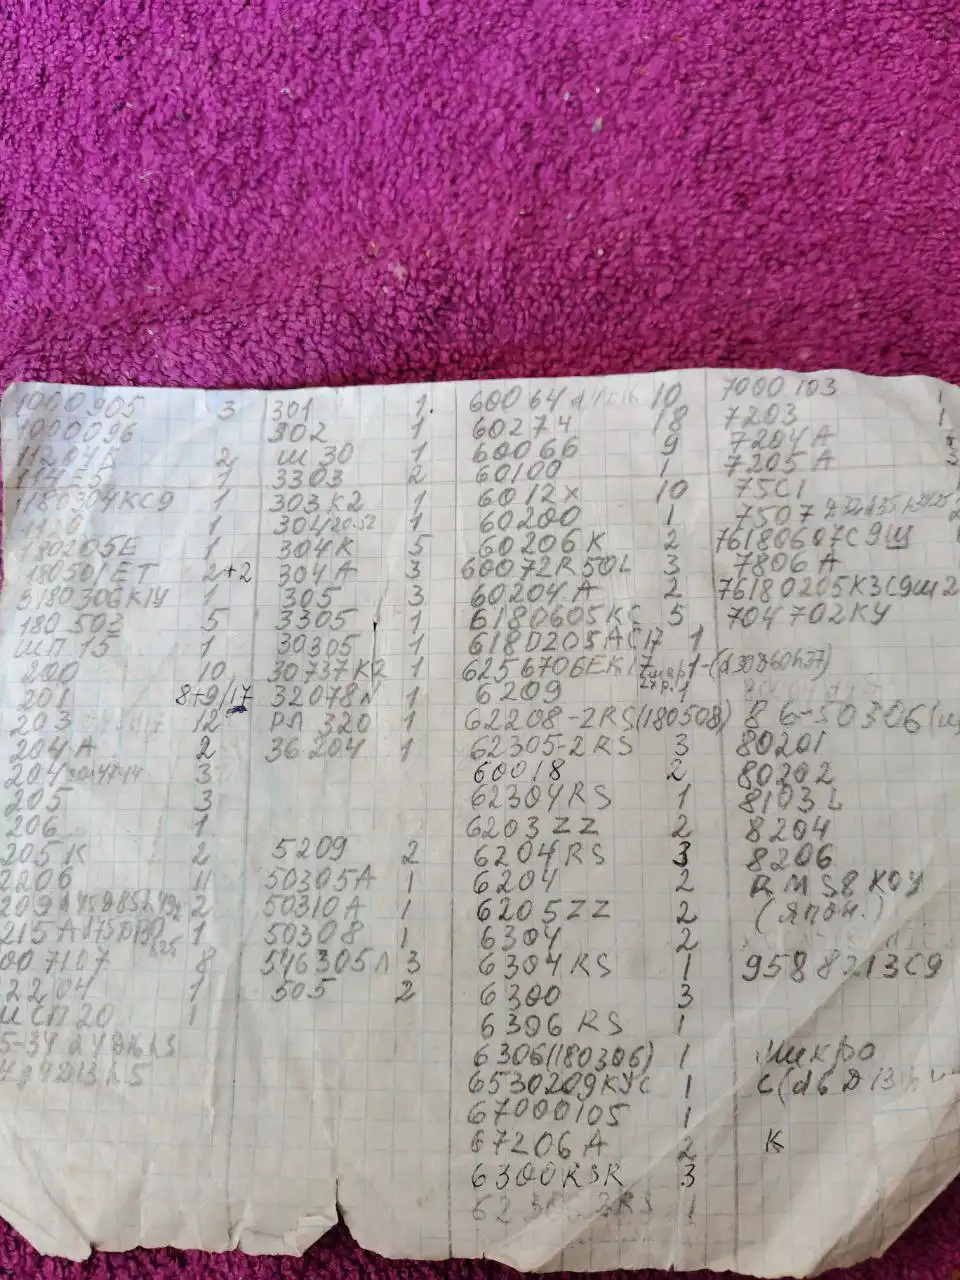 1000905 3
1000096
11204А 2
1
1180304КС9 1
1126 1
180205Е 1
180501ЕТ 2+2
8180306К1У 1
180503 5
ШП 15 1
200 10
201 8+9/17
203 12
204 А 2
204 3
205 3
206 1
205 К 2
2206 11
209 2
215 А 1
007107 8
2204 1
ШСП 20 1
301 1.
302 1
Ш 30 1
3303 2
303 К2 1
304/20.52 1
304К 5
304А 3
305 3
3305 1
30305 1
30737К2 1
32078Л 1
РП 320 1
36 204 1
5209 2
50305А 1
50310А 1
50308 1
546305Л 3
505 2
60064 10
60274 18
60066 9
60100 1
6012х 10
60200 1
60206 К 2
60072RS0L 3
60204 А 2
6180605КС 5
6180205АС17 1
6256706ЕК17 1-(d30D60h37)
6209 1
62208-2RS(180508)
62305-2RS 3
60018 2
62304RS 1
6203ZZ 2
6204RS 3
6204 2
6205ZZ 2
6304 2
6304 RS 1
6300 3
6306 RS 1
6306(180306) 1
6530209КУС 1
67000105 1
67206 А 2
6300RSR 3
1
7000103 1
7203 1
7204 А
7205 А
75С1
7507
76180607С9Ш 1
7806 А
76180205К3С9Ш 2
704702КУ
86-50306
80201
80202
8103 L
8204
8206
(Япон.)
9588213С9
Микро
К